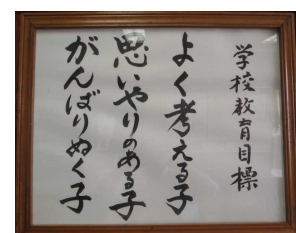 学校教育目標
よく考える子
思いやりのある子
がんばりぬく子